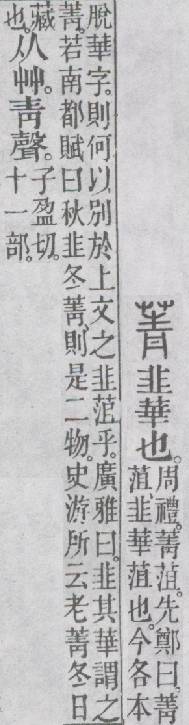 菁韭華也。周禮。菁菹。先鄭曰。菁
菹、韭華菹也。今各本
脫華字。則何以別於上文之韭菹乎。廣雅曰。韭其華謂之
菁。若南都賦曰秋韭冬菁、則是二物。史游所云老菁冬日
藏也。从艸。靑聲。子盈切。
十一部。